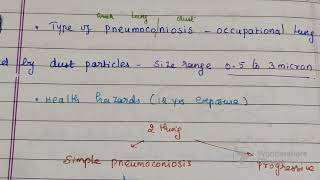 lung dust
• Type of pneumoconiosis - occupational lung
d by dust particles - size range 0.5 to 3 micron
• Health hazards (10 yrs exposure)
2 thing
Simple pneumoconiosis Progressive
Wondershare